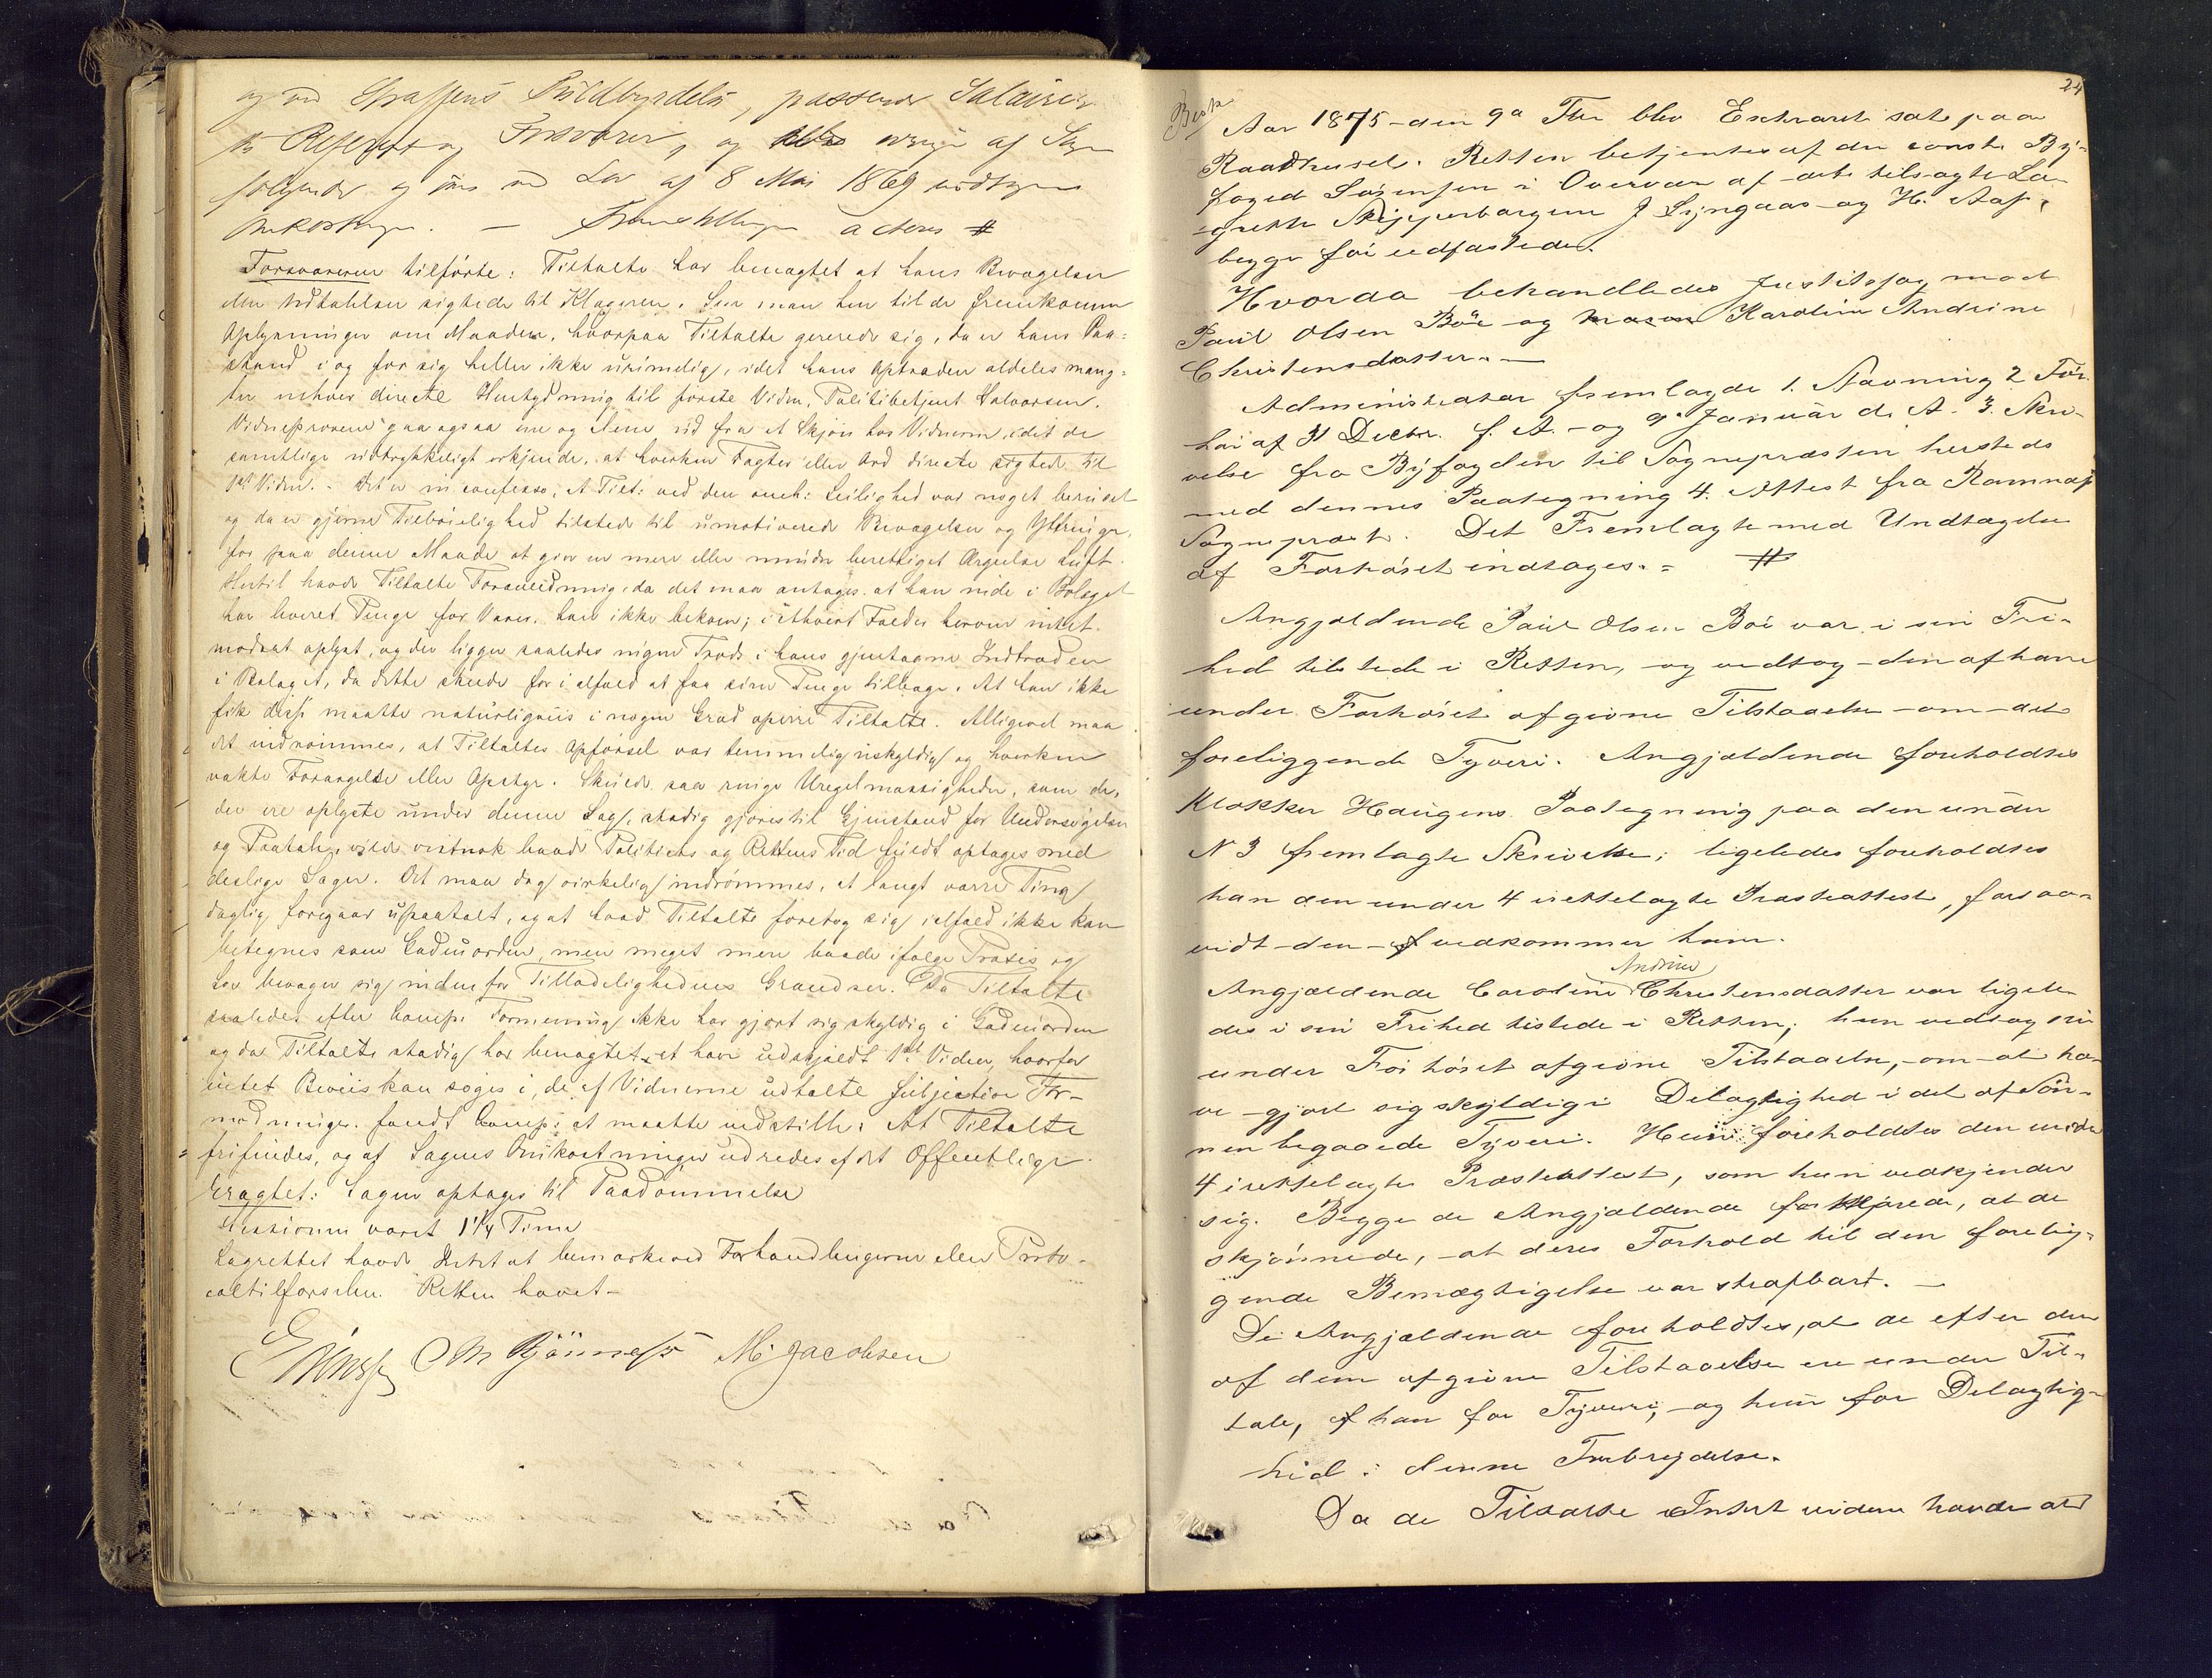 og ved Straffens Fuldbyrdelse, passende Salairer
til Referent og Forsvarer, og øvrige af Sagen
flydende og ved Lov af 8 Mai 1869
Omkostninger. — acterne #
Forsvareren tilførte: Tiltalte har benægtet at hans Bevægelser
eller Udtalelser sigtede til Klageren. Seer man hen til de fremkomne
Oplysninger om Maaden, hvorpaa Tiltalte gererede sig, da er hans Paa-
stand i og for sig heller ikke urimelig, idet hans Optræden aldeles mang-
ler enhver directe Hentydning til første Vidne, Politibetjent Halvorsen.
Vidneprovene gaa ogsaa ene og alene ud fra et Skjøn hos Vidnerne, idet de
samtlige udtrykkeligt erkjende, at hverken Fagter eller Ord directe sigtede til
1ste Vidne. – Det er in confesso, at Tilt: ved den omh: Leilighed var noget beruset
og da er gjerne Tilbøielighed tilstede til umotiverede Bevægelser og Yttringer,
for paa denne Maade at give en mere eller mindre berettiget Ærgrelse Luft.
Hertil havde Tiltalte Foranledning, da det maa antages at han inde i Bolaget
har leveret Penge for Varer, han ikke bekom; i ethvert Fald er herom intet
modsat oplyst, og der ligger saaledes ingen Trods i hans gjentagne Indtræden
i Bolaget, da dette skeede for i alfald at faa sine Penge tilbage. At han ikke
fik disse maatte naturligviis i nogen Grad opirre Tiltalte. Alligevel maa
det indrømmes, at Tiltaltes Opførsel var temmelig uskyldig og hverken
vakte Forargelse eller Opstyr. Skulde saa ringe Uregelmæssigheder, som de,
der ere oplyste under denne Sag, stadig gjøres til Gjenstand for Undersøgelser
og Paatale, vilde vistnok baade Politiets og Rettens Tid fuldt optages med
deslige Sager. Det maa dog virkelig indrømmes, at langt værre Ting
daglig foregaar upaatalt, og at hvad Tiltalte foretog sig ialfald ikke kan
betegnes som Gadeuorden, men meget mere baade ifølge Praxis og
Lov bevæger sig inden for Tilladelighedens Grændser. Da Tiltalte
saaledes efter Comp: Formening ikke har gjort sig skyldig i Gadeuorden
og da Tiltalte stadig har benægtet, at have udskjældt 1ste Vidne, hvorfor
intet Beviis kan søges i, de af Vidnerne udtalte subjective For-
modninger, fandt Comp: at maatte indstille: At Tiltalte
frifindes, og at Sagens Omkostninger udredes af det Offentlige.
Eragtet: Sagen optages til Paadømmelse
Sessionen varet 1 1/4 Time
Lagrettet havde Intet at bemærke ved Forhandlingerne eller Proto-
coltilførselen. Retten hævet –
M. Jacobsen
24
Aar 1875 – den 9de Fbr blev Extraret sat paa
Raadhuset. Retten betjentes af den const. By-
foged Sørensen i Overvær af det tilsagte La-
grette Skipperborgerne J Lyngaas og H. Aas,
begge før edfæstede.
Hvorda behandledes Justitssag mod
Paul Olsen Bøe og Karoline Andrine
Christensdatter. –
Administrator fremlagde 1. Stævning 2 For-
hør af 31 Decbr. f. A. og 9 Januar d. A. 3. Skri-
velse fra Byfogden til Sognepræsten hersteds
med dennes Paategning 4. Attest fra Ramnæs
Sognepræst. Det Fremlagte med Undtagelse
af Forhøret indtages. = #
Angjældende Paul Olsen Bøe var i sin Fri-
hed tilstede i Retten, og vedtog den af ham
under Forhøret afgivne Tilstaaelse om det
foreliggende Tyveri. Angjældende foreholdtes
Klokker Haugens Paategning paa den under
N 3 fremlagte Skrivelse; ligeledes foreholdtes
han den under 4 irettelagte Præsteattest, forsaa-
vidt den vedkommer ham.
Andrine
Angjældende Caroline Christensdatter var ligele-
des i sin Frihed tilstede i Retten; hun vedtog sin
under Forhøret afgivne Tilstaaelse, om at ha-
ve gjort sig skyldig i Delagtighed i det af Søn-
nen begaaede Tyveri. Hun foreholdtes den under
4 irettelagte Præsteattest, som hun vedkjender
sig. Begge de Angjældende forklarede, at de
skjønnede, at deres Forhold til den forelig-
gende Bemægtigelse var strafbart. –
De Angjældende foreholdtes, at de efter den
af dem afgivne Tilstaaelse ere under Til-
tale, han for Tyveri, og hun for Delagtig-
hed i denne Forbrydelse.
Da de Tiltalte Intet videre havde at